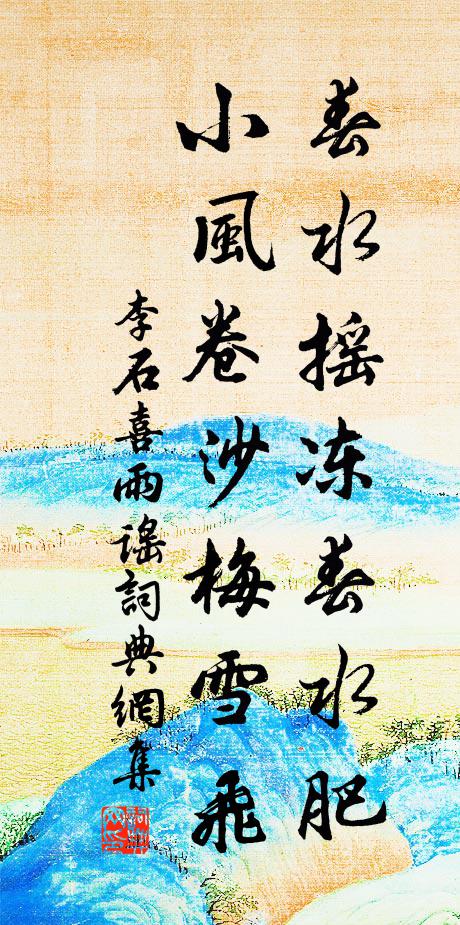 春水摇冻春水肥
小風卷沙梅雪飛
李石喜雨謡詞典網集